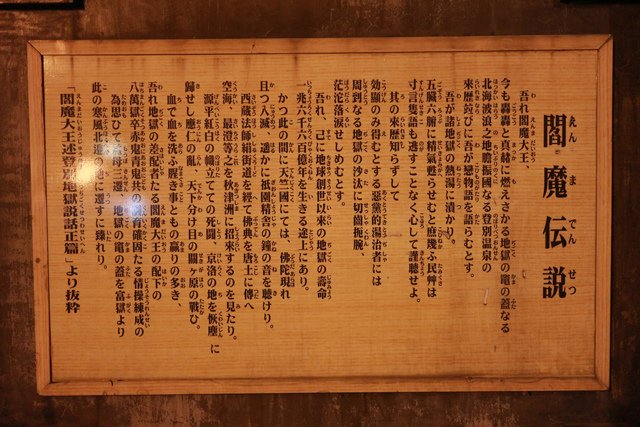 閻魔伝説
吾れ閻魔大王、
今も轟轟と真赭に燃えさかる地獄の竈の蓋なる
北海波浪之地膽振國なる登別温泉の
来歴竝びに吾が戀物語を語らむとす。
吾が諸地獄の熱湯に漬かり。
五臓六腑に精氣甦らせむと庶幾ふ民艸は
寸言隻語も逃すことなく心して謹聴せよ。
其の来歴知らずして
効顕のみ得むとする惡黨的湯治者には
周到なる地獄の沙汰に切齒扼腕、
茫沱落涙せしめむとす。
吾れ、已に地球創世以来の地獄の壽命
一兆六千六百億年を生きる途上にあり。
かつ此の間に天竺國にては、佛陀現れ
且つ入滅、遥かに祇園精舎の鐘の音を聴けり。
西蔵法師絹街道を経て佛典を唐土に傳へ
空海、最澄等之を秋津洲に招来するのを見たり。
源平紅白の幟立てての死闘、京洛の地を恢塵に
歸せし應仁の亂、天下分け目の關ヶ原の戰ひ。
血で血を洗ふ腥き事ともの贏りの多き、
吾れ地獄の支配者たる閻魔大王の配下の
八萬獄卒赤鬼青鬼共の
因たる情操練成の
為思ひて孟母三遷、地獄の竈の蓋を富嶽より
此の寒風北邊の
に遷すに臻れり。
「閻魔大王述登別地獄説話正篇」より抜粋